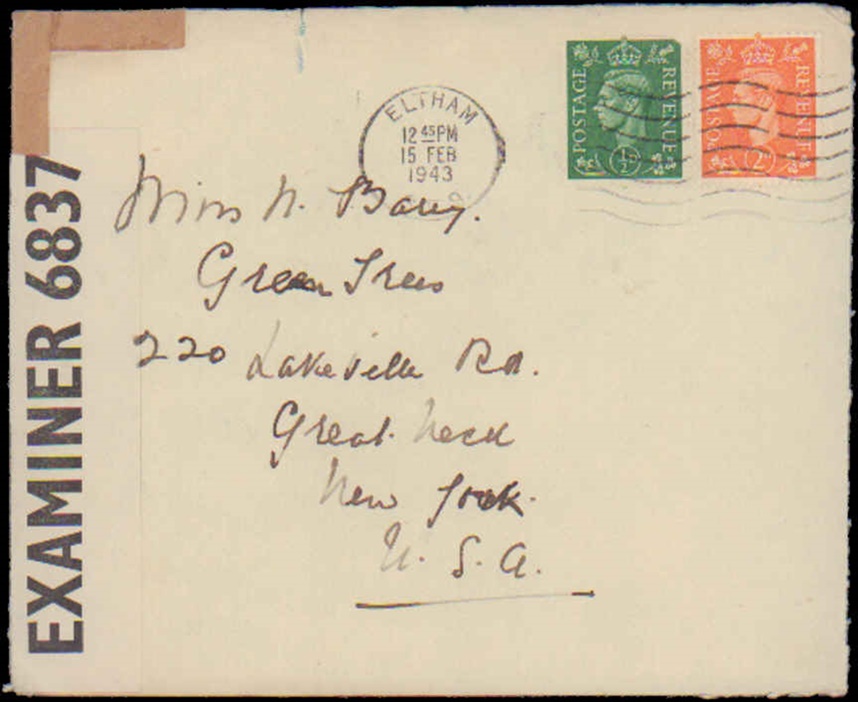 ELTHAM
12 45 PM
15 FEB
1943
POSTAGE REVENUE
½D
POSTAGE REVENUE
2D
EXAMINER 6837
Miss N. Barry.
Green Trees
220 Lakeville Rd.
Great Neck
New York.
U. S. A.